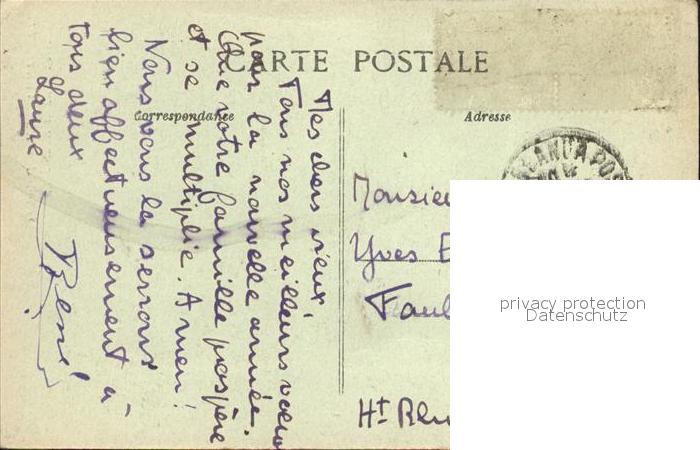 CARTE POSTALE
Correspondance
Adresse
Mes chers vieux,
Tous nos meilleurs voeux
pour la nouvelle année.
Que votre famille prospère
et se multiplie. Amen!
Nous vous la serrons
bien affectueusement à
tous deux
Laure
René
Monsieu
Yves E
Ht Rh
privacy protection
Datenschutz